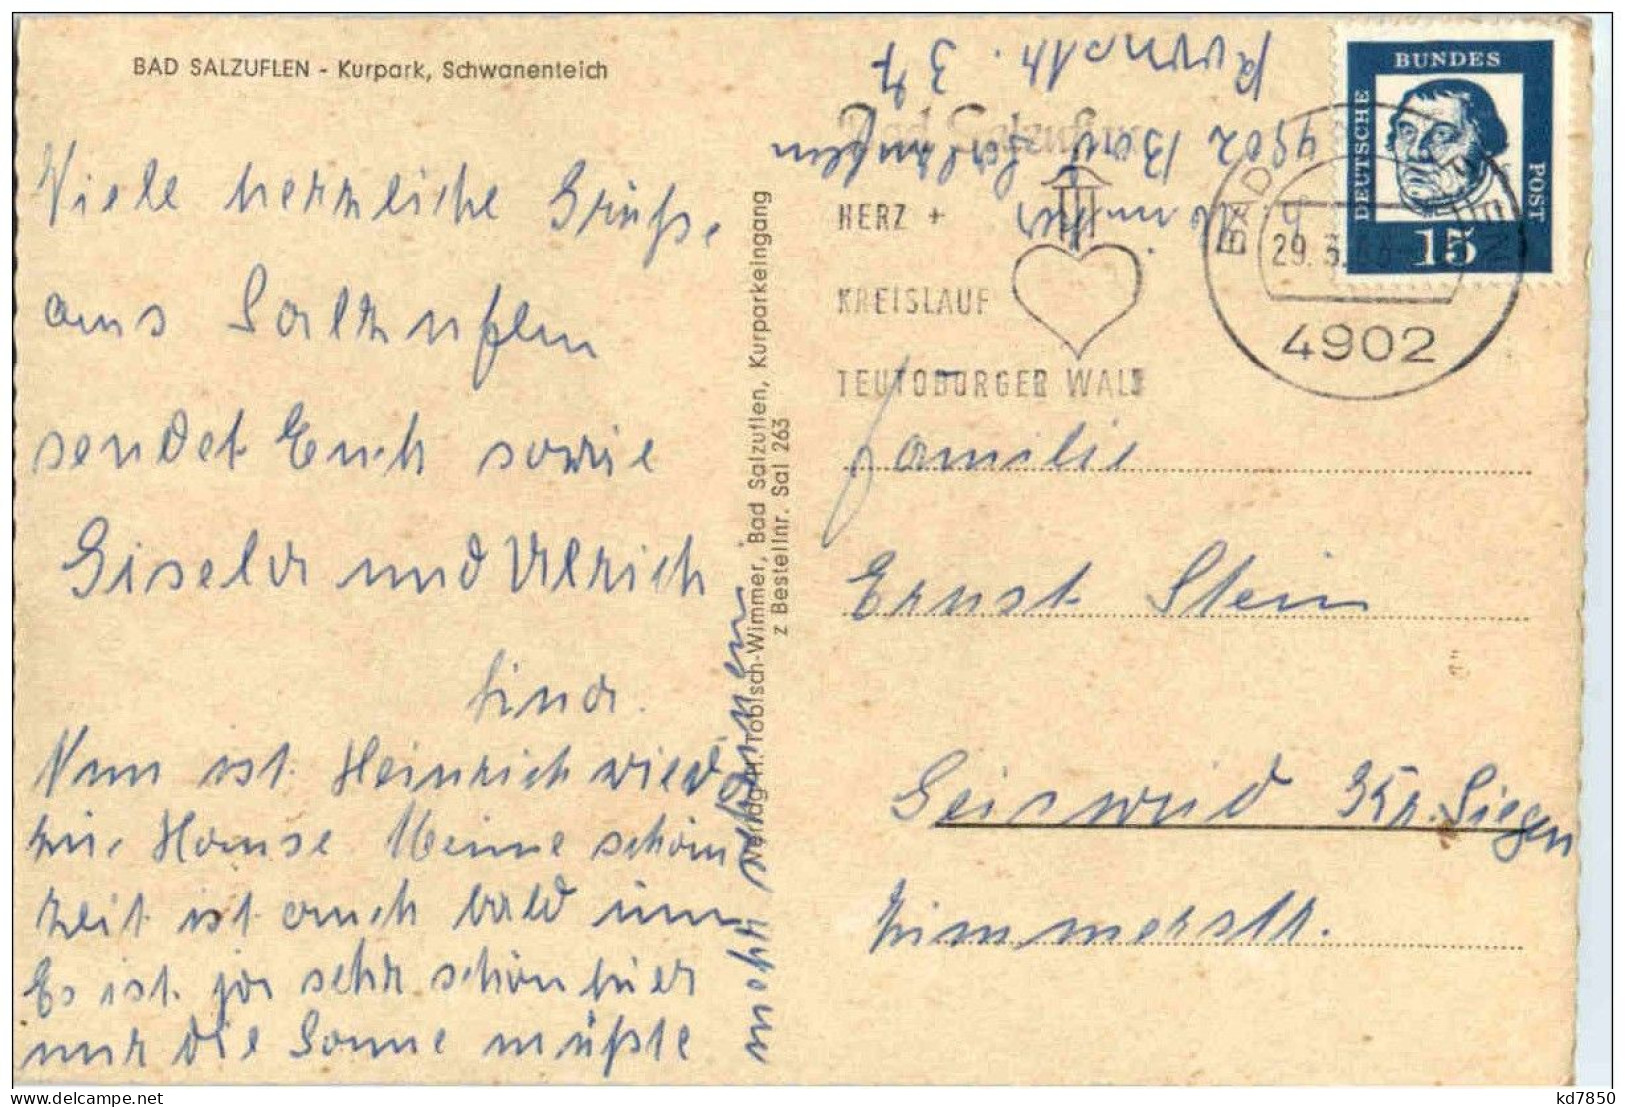 BAD SALZUFLEN - Kurpark, Schwanenteich
Viele herzliche Grüße
aus Salzuflen
sendet Euch sowie
Gisela und Ulrich
Lina.
Nun ist Heinrich wieder
zu Hause Meine schöne
Zeit ist auch bald um
Es ist ja sehr schön hier
nur die Sonne müßte
mehr scheinen
Verlag H. Tobisch-Wimmer, Bad Salzuflen, Kurparkeingang
z Bestellnr. Sal 263
4902 Bad Salzuflen
Bad Salzuflen
HERZ +
KREISLAUF
TEUTOBURGER WALD
BAD
29. 3.
4902
BUNDES
DEUTSCHE
POST
15
Familie
Ernst Stein
Geisweid Kr. Siegen
Zimmerstr.
kd7850